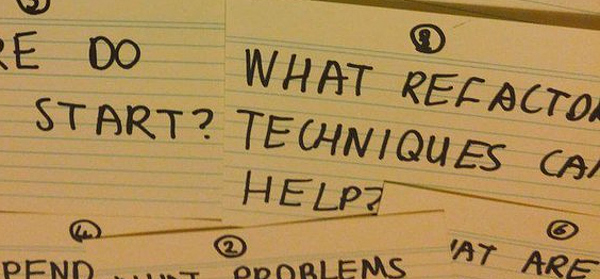 RE DO
START?
8
WHAT REFACTO
TECHNIQUES CA
HELP?
4
PEND
2
PROBLEMS
6
AT ARE